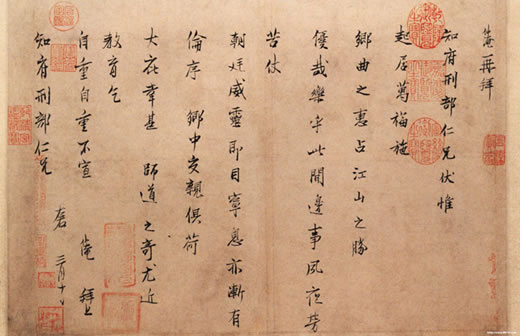 淹再拜
知府刑部仁兄伏惟
起居萬福施
鄉曲之惠占江山之勝
優哉樂乎此間邊事夙夜勞
苦仗
朝廷威靈即目寧息亦漸有
倫序鄉中交親俱荷
大庇幸甚師道之奇尤近
教育乞
自重自重不宣 淹 拜上
知府刑部仁兄
三月十日